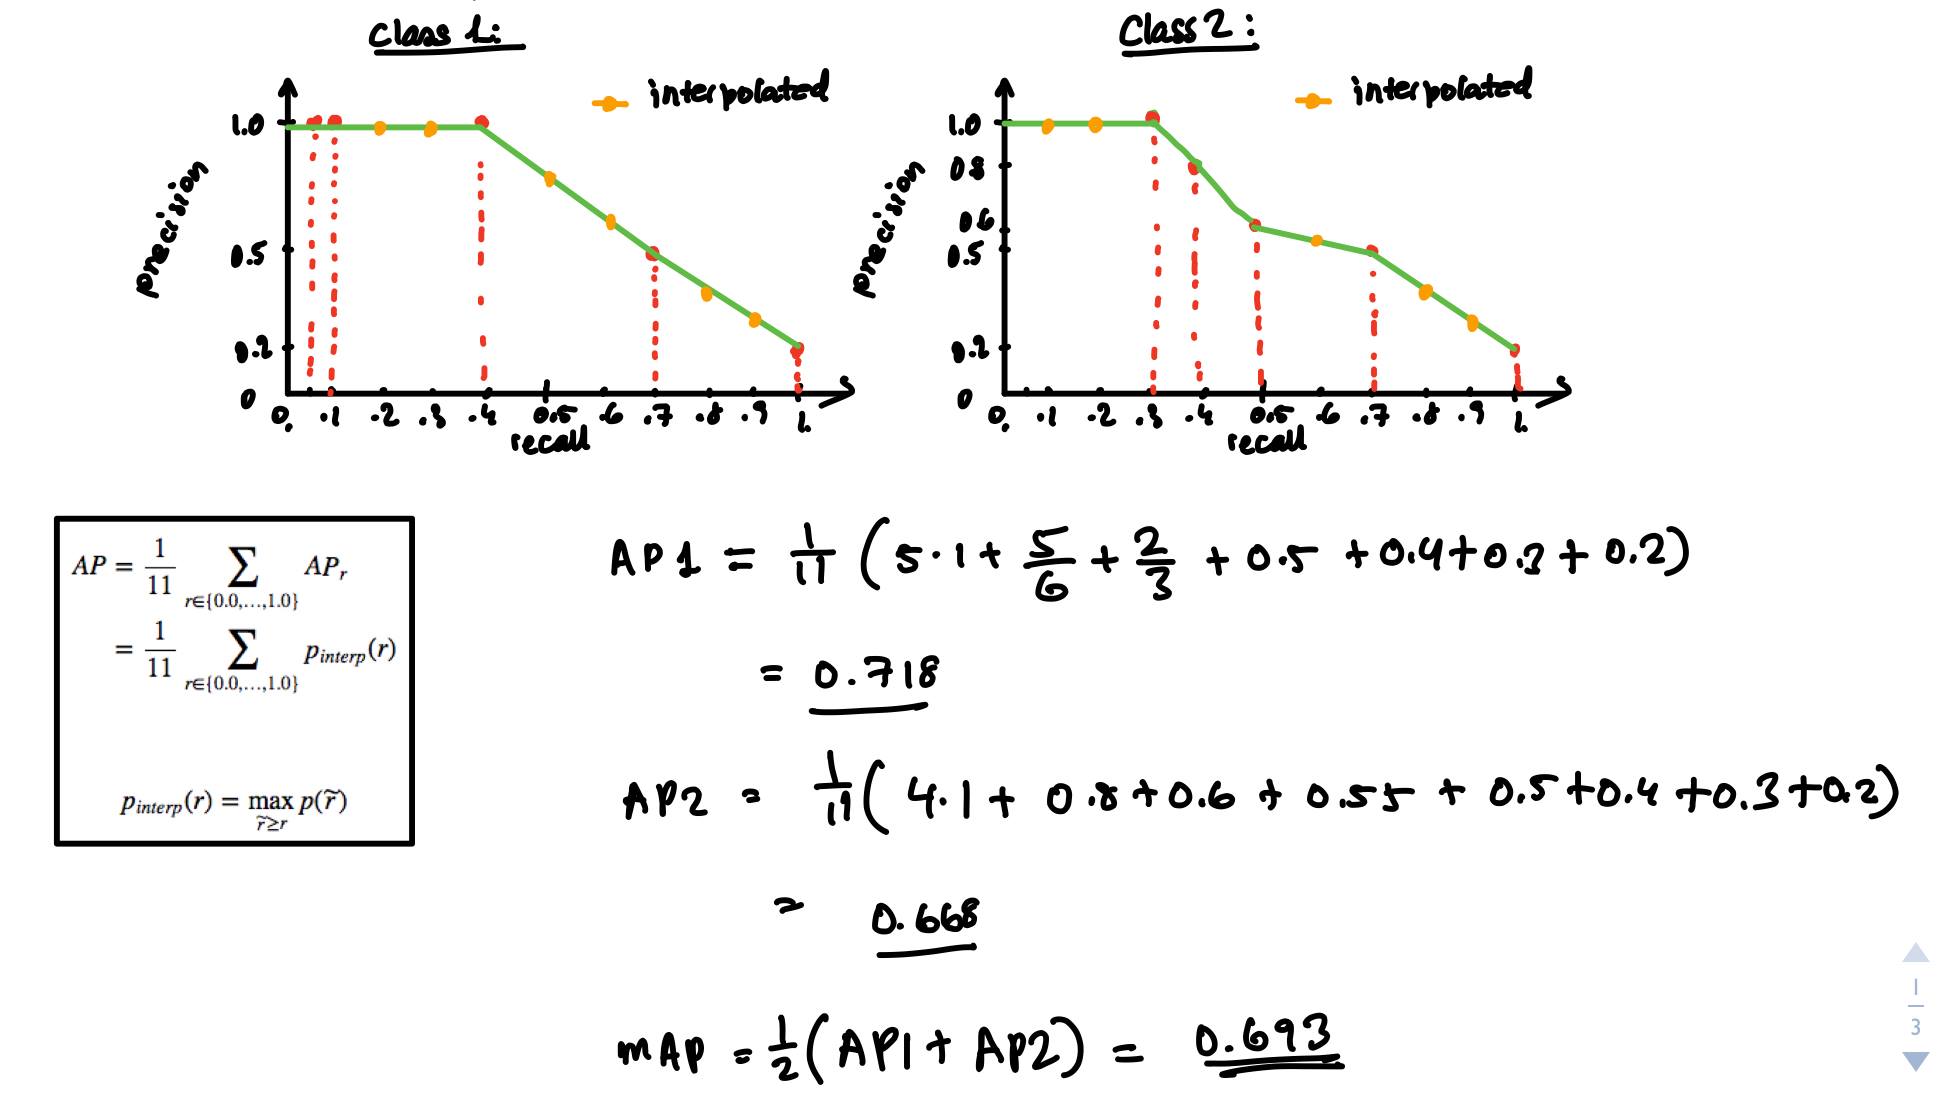 Class 1:
interpolated
precision
1.0
0.5
0.2
0
0. .1 .2 .3 .4 0.5 .6 .7 .8 .9 1.
recall
Class 2:
interpolated
precision
1.0
0.8
0.6
0.5
0.2
0
0. .1 .2 .3 .4 0.5 .6 .7 .8 .9 1.
recall
AP = 1/11 ∑ r∈{0.0,...,1.0} AP_r
= 1/11 ∑ r∈{0.0,...,1.0} p_interp(r)
p_interp(r) = max r̃≥r p(r̃)
AP1 = 1/11 (5·1 + 5/6 + 2/3 + 0.5 + 0.4 + 0.3 + 0.2)
= 0.718
AP2 = 1/11 (4·1 + 0.8 + 0.6 + 0.55 + 0.5 + 0.4 + 0.3 + 0.2)
= 0.668
mAP = 1/2 (AP1 + AP2) = 0.693
1
3